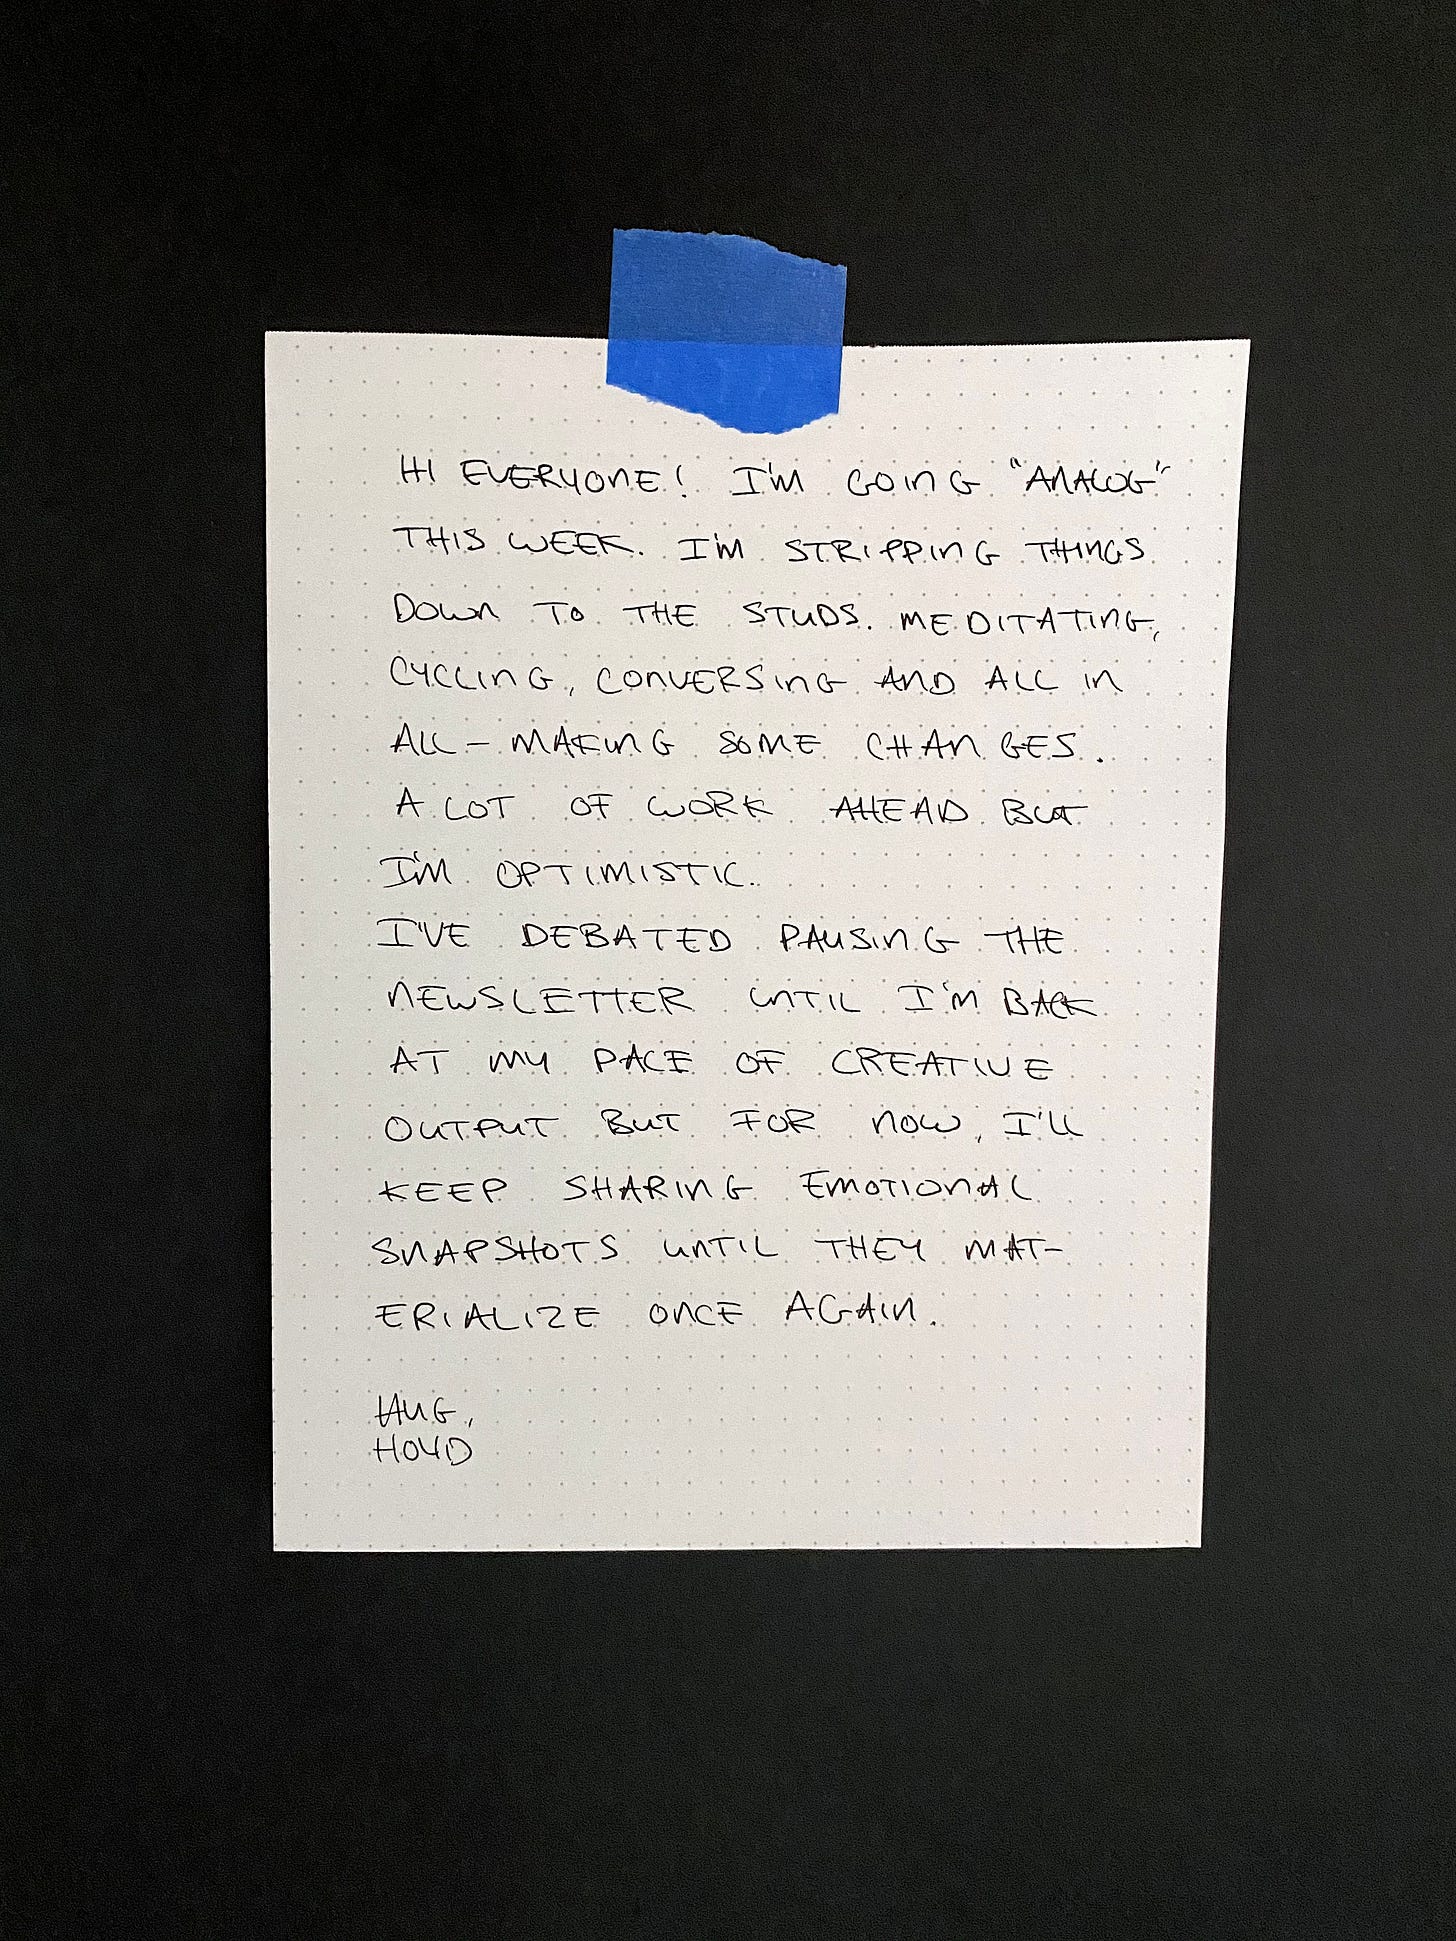 HI EVERYONE! I'M GOING "ANALOG"
THIS WEEK. I'M STRIPPING THINGS
DOWN TO THE STUDS. MEDITATING,
CYCLING, CONVERSING AND ALL IN
ALL – MAKING SOME CHANGES.
A LOT OF WORK AHEAD BUT
I'M OPTIMISTIC.
I'VE DEBATED PAUSING THE
NEWSLETTER UNTIL I'M BACK
AT MY PACE OF CREATIVE
OUTPUT BUT FOR NOW, I'LL
KEEP SHARING EMOTIONAL
SNAPSHOTS UNTIL THEY MAT-
ERIALIZE ONCE AGAIN.
HUG,
HOYD